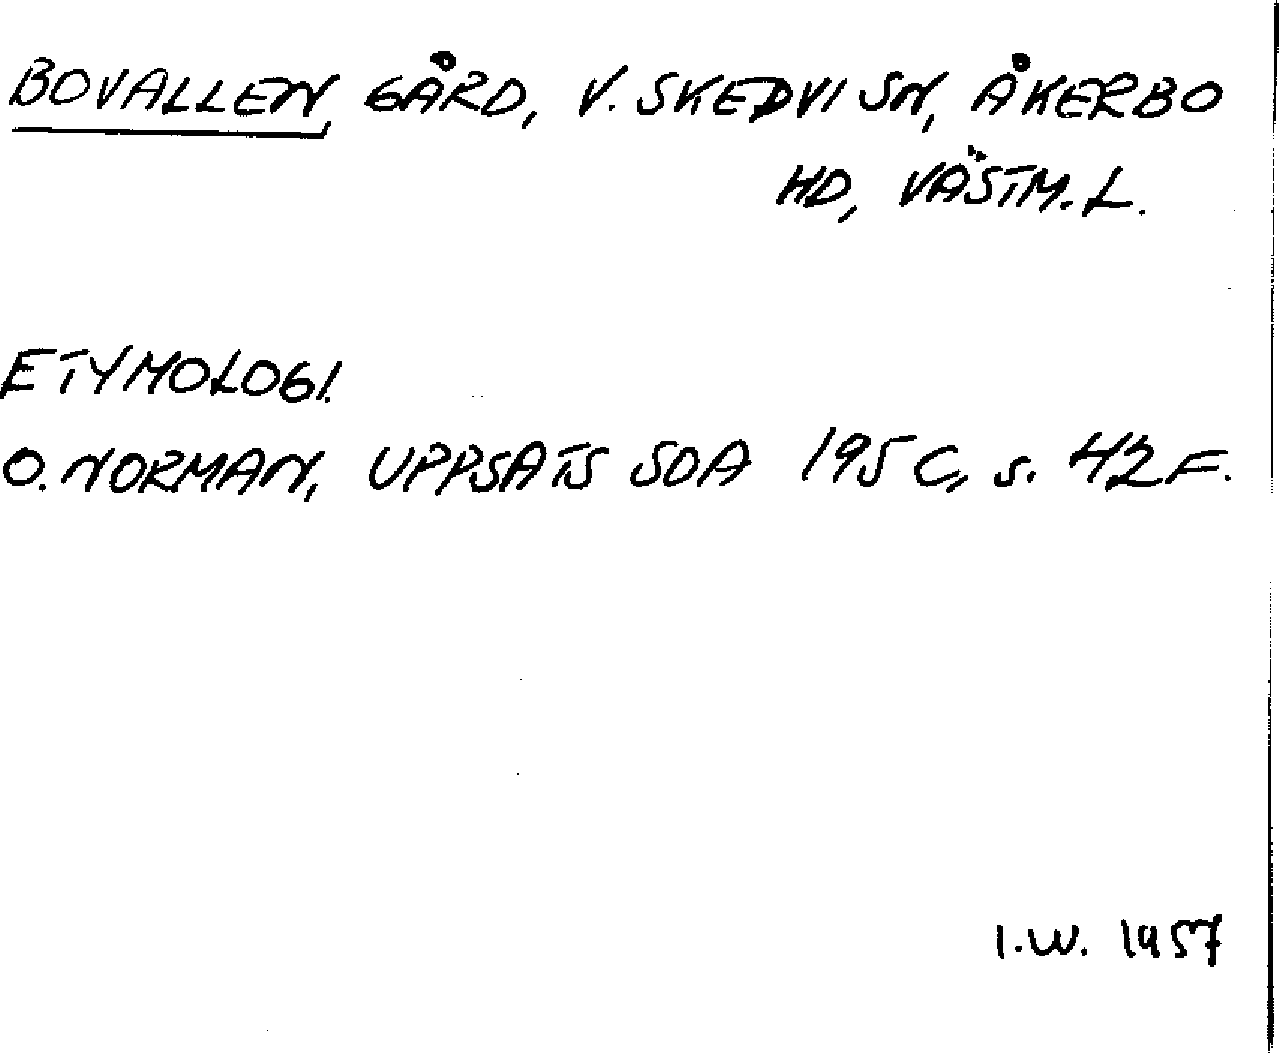 BOVALLEN, GÅRD, V. SKEDVI SN, ÅKERBO
HD, VÄSTM. L.
ETYMOLOGI.
O. NORMAN, UPPSATS SOA 195C, s. 42 F.
I.W. 1957